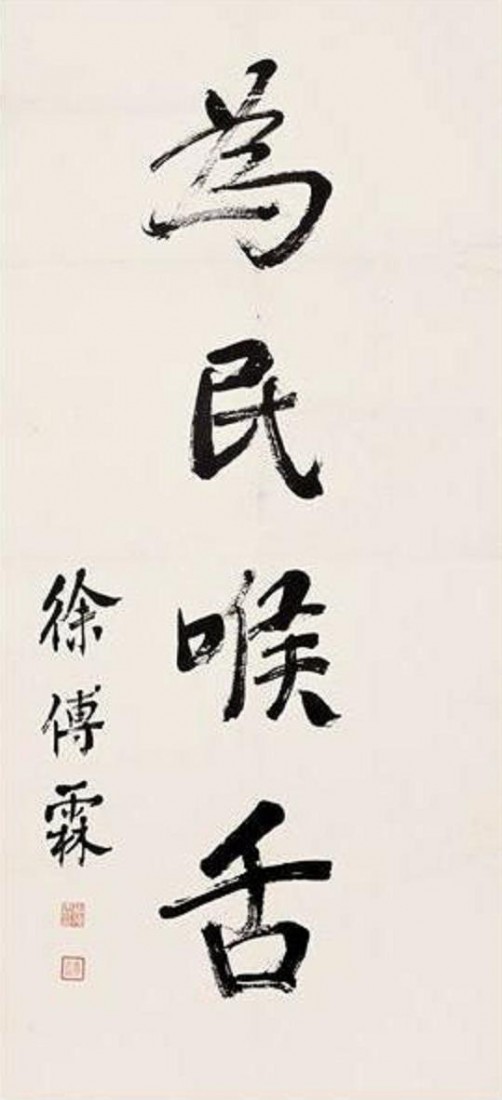 為民喉舌
徐傅霖